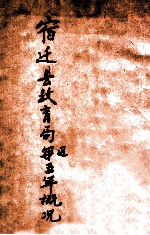 宿迁县教育局第五年概况